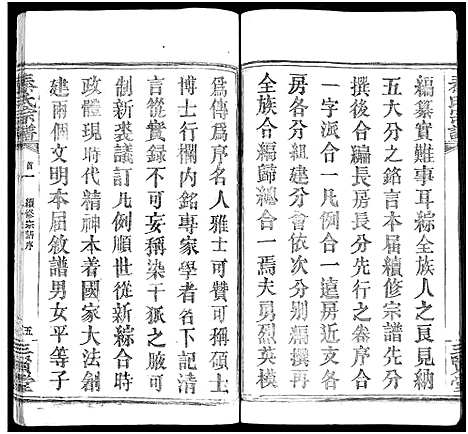 編纂實難車耳綜全族人之良見納
五大分之銘言本届續修宗譜先分
撰後合編長房長分先行之卷序合
一字派合一凡例合一遠房近支各
房各分組建分會依次分别編撰
全族合編歸總合一焉夫勇烈英模
為傳為序名人雅士可贊可稱碩士
博士行欄内銘專家學者名下記清
言從實録不可妄稱染千狐之腋可
制新裘議訂凡例順世從新綜合時
政體現時代精神本着國家大法創
建兩個文明本届敘譜男女平等子
秦氏宗譜
首一
續修宗譜序
五
三賢堂